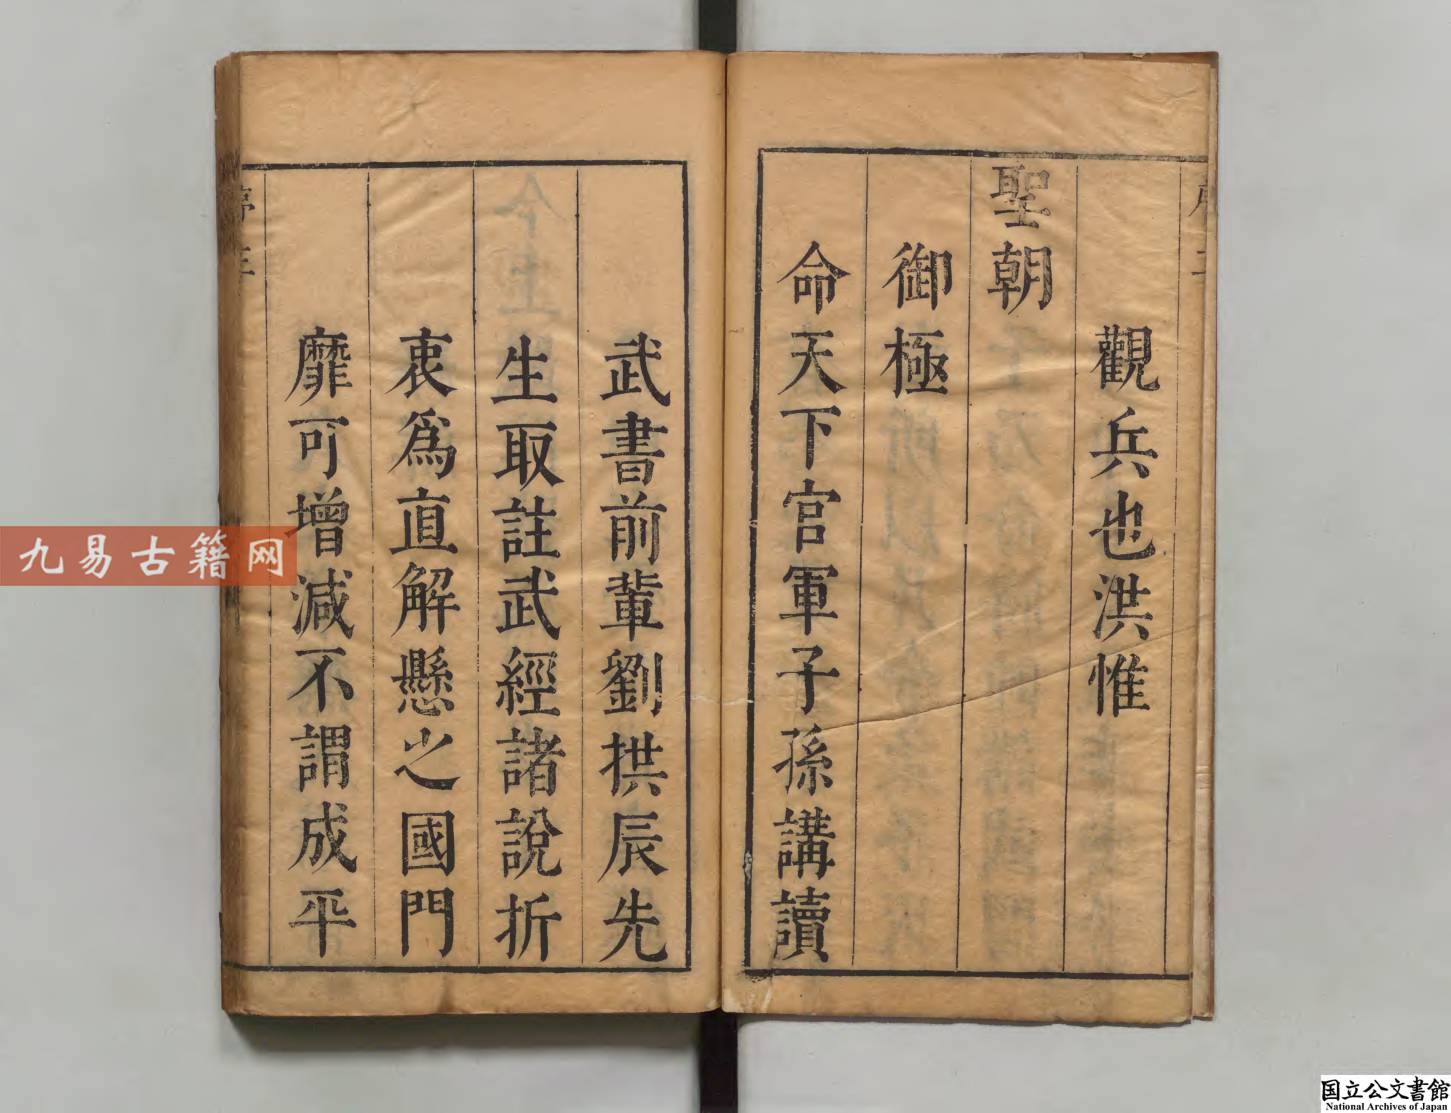 觀兵也洪惟
聖朝
御極
命天下官軍子孫講讀
武書前輩劉拱辰先
生取註武經諸說折
衷爲直解懸之國門
靡可增減不謂成平
九易古籍网
国立公文書館
National Archives of Japan